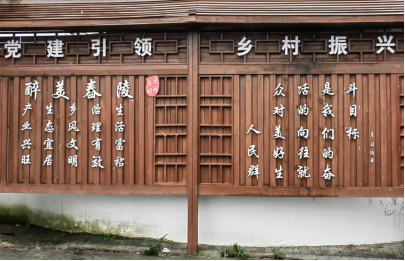 党建引领 乡村振兴
醉美舂陵
产业兴旺
生态宜居
乡风文明
治理有效
生活富裕
人民群
众对美好生
活的向往就
是我们的奋
斗目标
——习近平